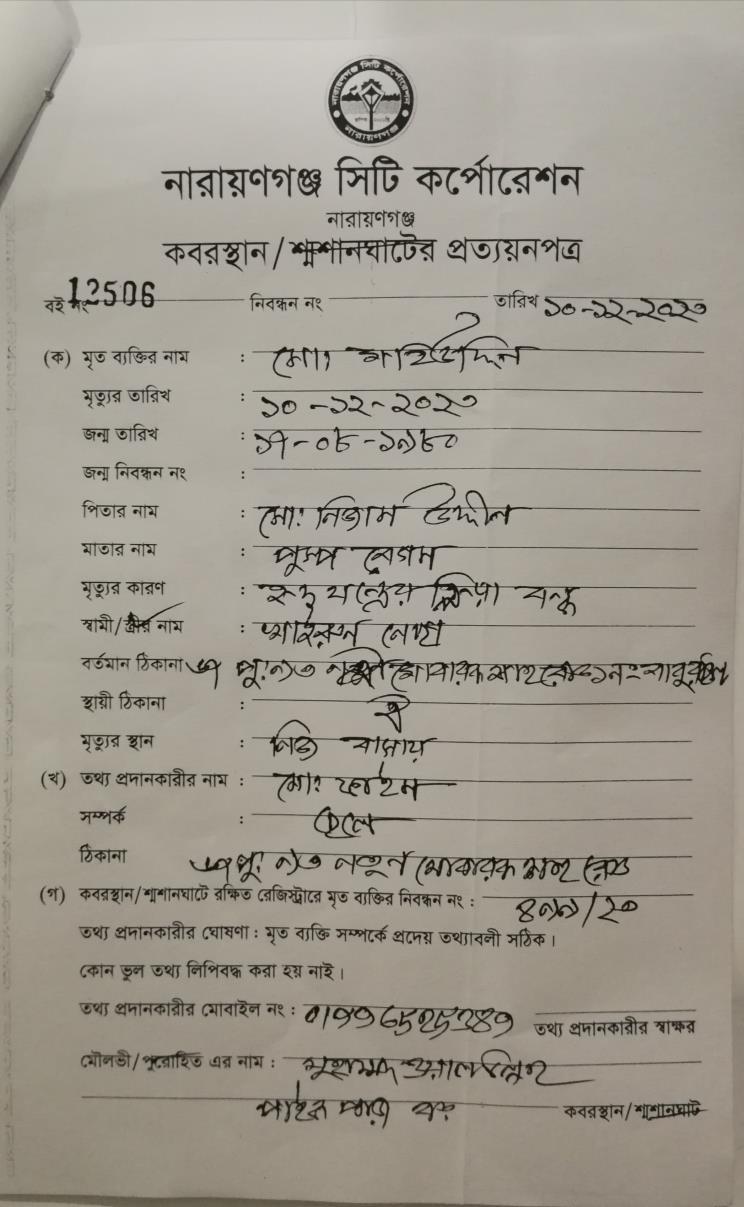 নারায়ণগঞ্জ সিটি কর্পোরেশন
নারায়ণগঞ্জ
নারায়ণগঞ্জ সিটি কর্পোরেশন
নারায়ণগঞ্জ
কবরস্থান/শ্মশানঘাটের প্রত্যয়নপত্র
বই নং 12506 নিবন্ধন নং তারিখ ১০-১২-২০২৩
(ক) মৃত ব্যক্তির নাম : মোঃ
মৃত্যুর তারিখ : ১০-১২-২০২৩
জন্ম তারিখ : ১৭-০৮-১৯৮০
জন্ম নিবন্ধন নং :
পিতার নাম : মোঃ নিজাম উদ্দীন
মাতার নাম : পুস্প বেগম
মৃত্যুর কারণ : যন্ত্রের ক্রিয়া বন্ধ
স্বামী/স্ত্রীর নাম : নেছা
বর্তমান ঠিকানা
স্থায়ী ঠিকানা : ঐ
মৃত্যুর স্থান : নিজ বাসায়
(খ) তথ্য প্রদানকারীর নাম : মোঃ
সম্পর্ক : ছেলে
ঠিকানা নতুন মোবারক শাহ রোড
(গ) কবরস্থান/শ্মশানঘাটে রক্ষিত রেজিস্ট্রারে মৃত ব্যক্তির নিবন্ধন নং : ৪৯৯/২০
তথ্য প্রদানকারীর ঘোষণা : মৃত ব্যক্তি সম্পর্কে প্রদেয় তথ্যাবলী সঠিক।
কোন ভুল তথ্য লিপিবদ্ধ করা হয় নাই।
তথ্য প্রদানকারীর মোবাইল নং : তথ্য প্রদানকারীর স্বাক্ষর
মৌলভী/পুরোহিত এর নাম :
কবরস্থান/শ্মশানঘাট